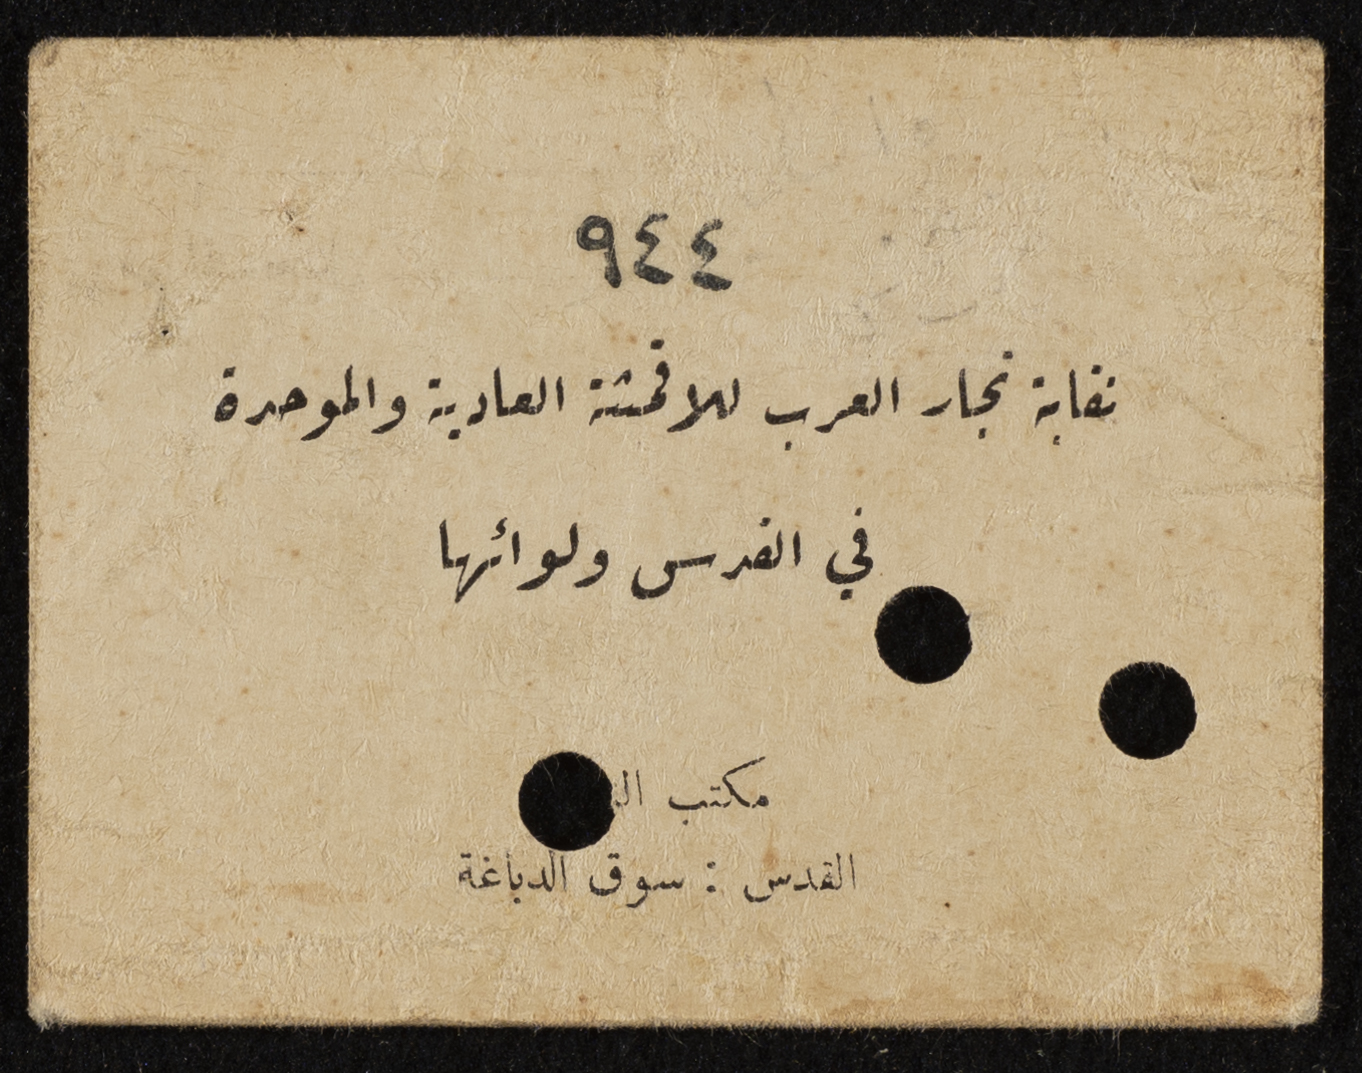 ٩٤٤
نقابة تجار العرب للاقمشة العادية والموحدة
في القدس ولوائها
مكتب
القدس : سوق الدباغة